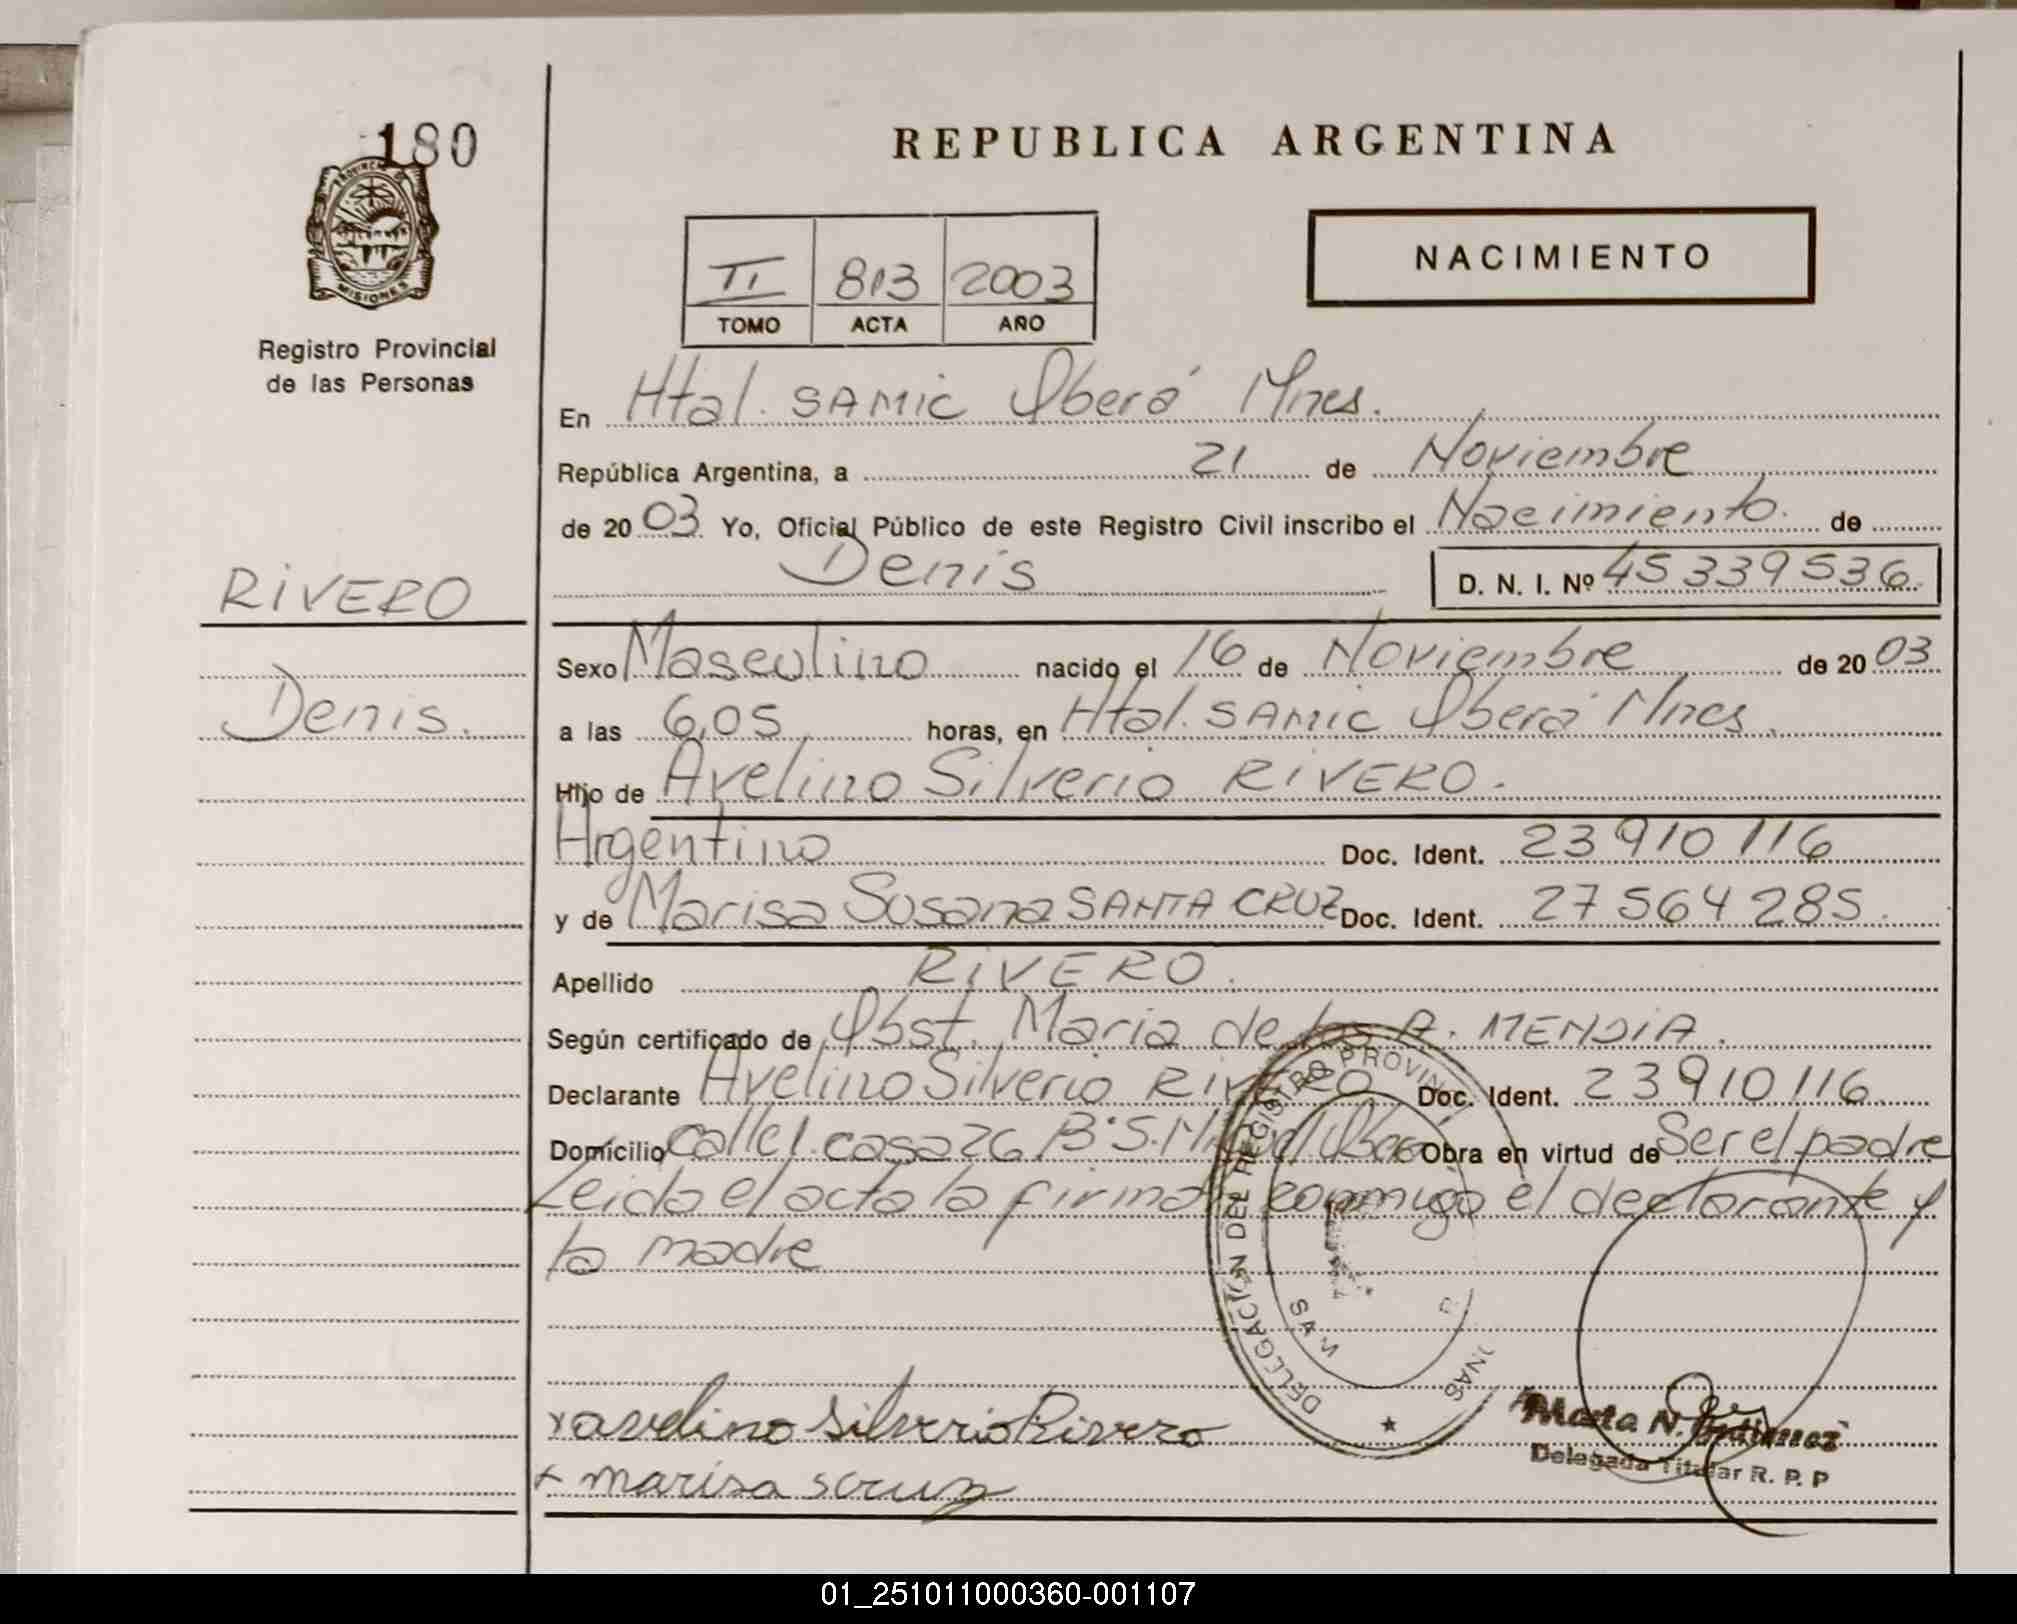 180
REPUBLICA ARGENTINA
PROVINCIA D
MISIONES
Registro Provincial
de las Personas
NACIMIENTO
II 813 2003
TOMO ACTA AÑO
En Htal. SAMIC Oberá Mnes.
República Argentina, a 21 de Noviembre
de 2003 Yo, Oficial Público de este Registro Civil inscribo el Nacimiento. de
Denis D. N. I. Nº 45 339 536.
RIVERO
Denis.
Sexo Masculino nacido el 16 de Noviembre de 2003
a las 6,05 horas, en Htal. SAMIC Oberá Mnes.
Hijo de Avelino Silverio RIVERO.
Argentino Doc. Ident. 23 910 116
y de Marisa Susana SANTA CRUZ Doc. Ident. 27 564 285.
Apellido RIVERO.
Según certificado de Obst. Maria de los A. MENDIA.
Declarante Avelino Silverio RIVERO Doc. Ident. 23910116.
Domicilio calle 1. casa 26 B° S. Miguel Oberá Obra en virtud de Ser el padre
Leida el acta la firman conmigo el declarante y
la madre
DELEGACION DEL REGISTRO PROVIN
avelino silverio Rivero
marisa scruz
Marta N. Gutierrez
Delegada Titular R. P. P
01_251011000360-001107